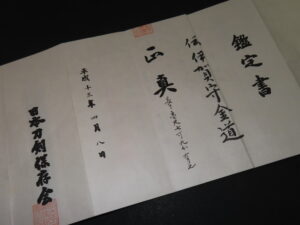 鑑定書
伝伊賀守金道
正真
平成十三年四月八日
日本刀剣保存会